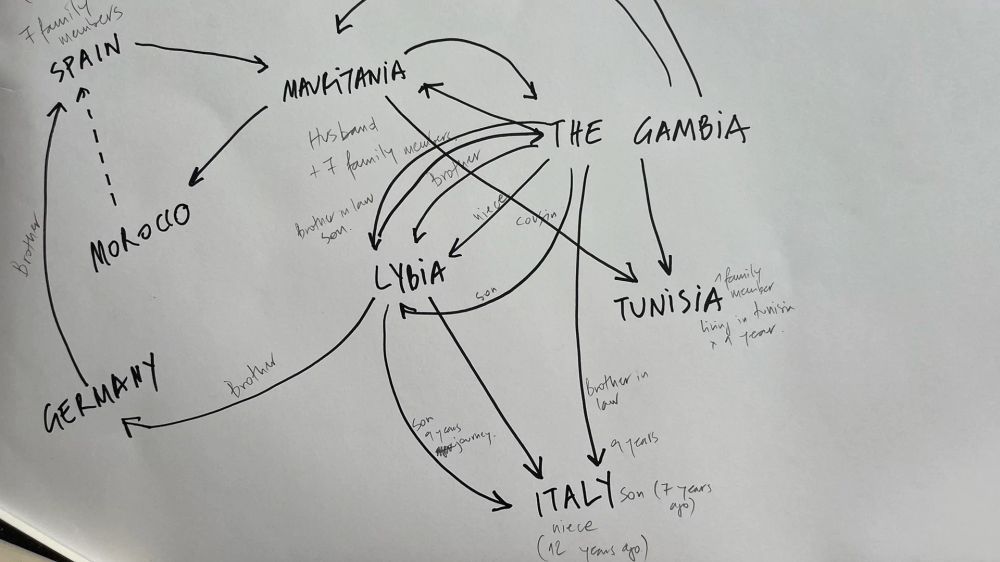 7 family
members
SPAIN
MAURITANIA
THE GAMBIA
Husband
+ 7 family members
Brother
Brother in law
son.
niece
cousin
MOROCCO
Brother
LYBIA
son
TUNISIA
1 family
member
living in tunisia
x 1 year.
GERMANY
Brother
Brother in
law
son
9 years
journey.
9 years
ITALY
son (7 years
ago)
niece
(12 years ago)